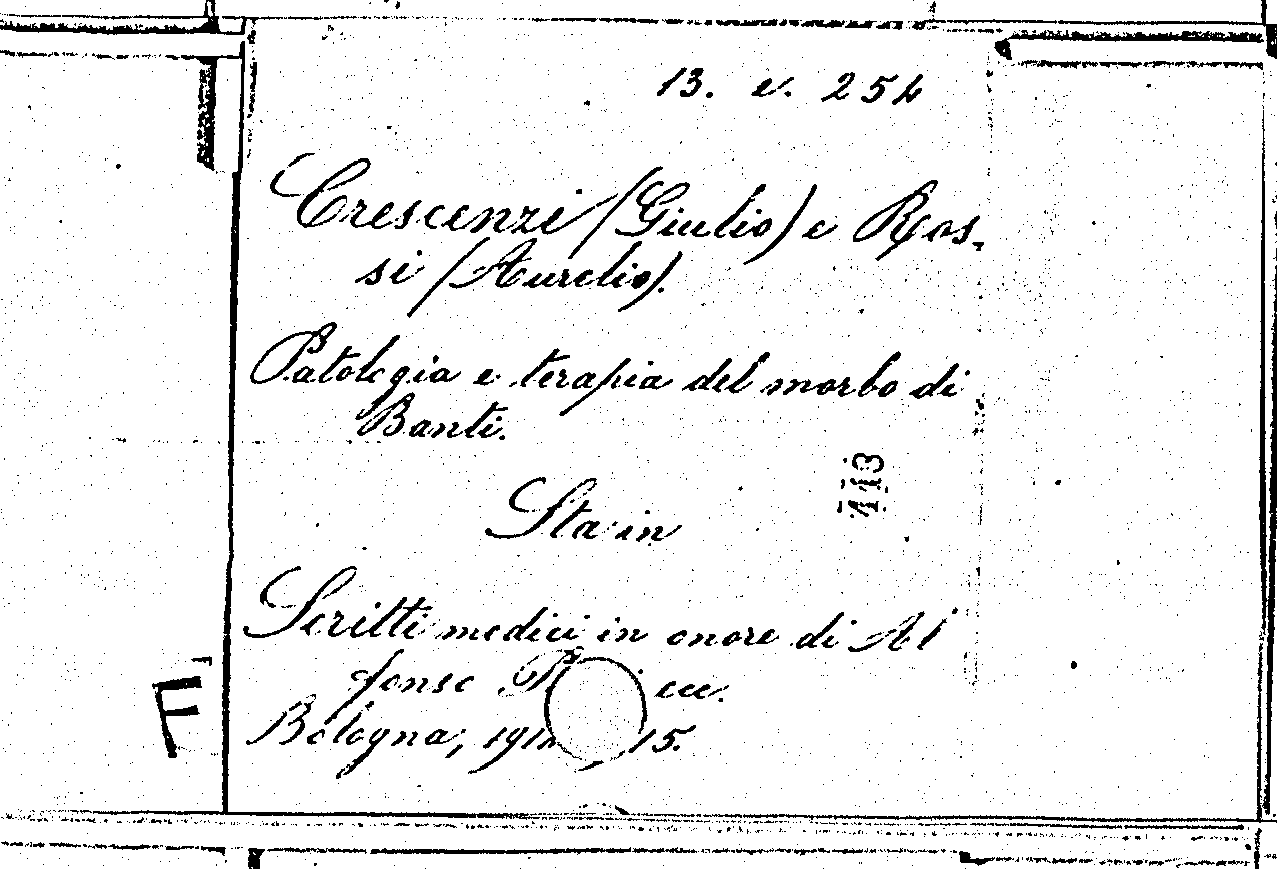 13. v. 254
Crescenzi (Giulio) e Ros-
si (Aurelio).
Patologia e terapia del morbo di
Banti.
113
Sta in
Scritti medici in onore di Al
fonso ecc.
Bologna, 15.
F